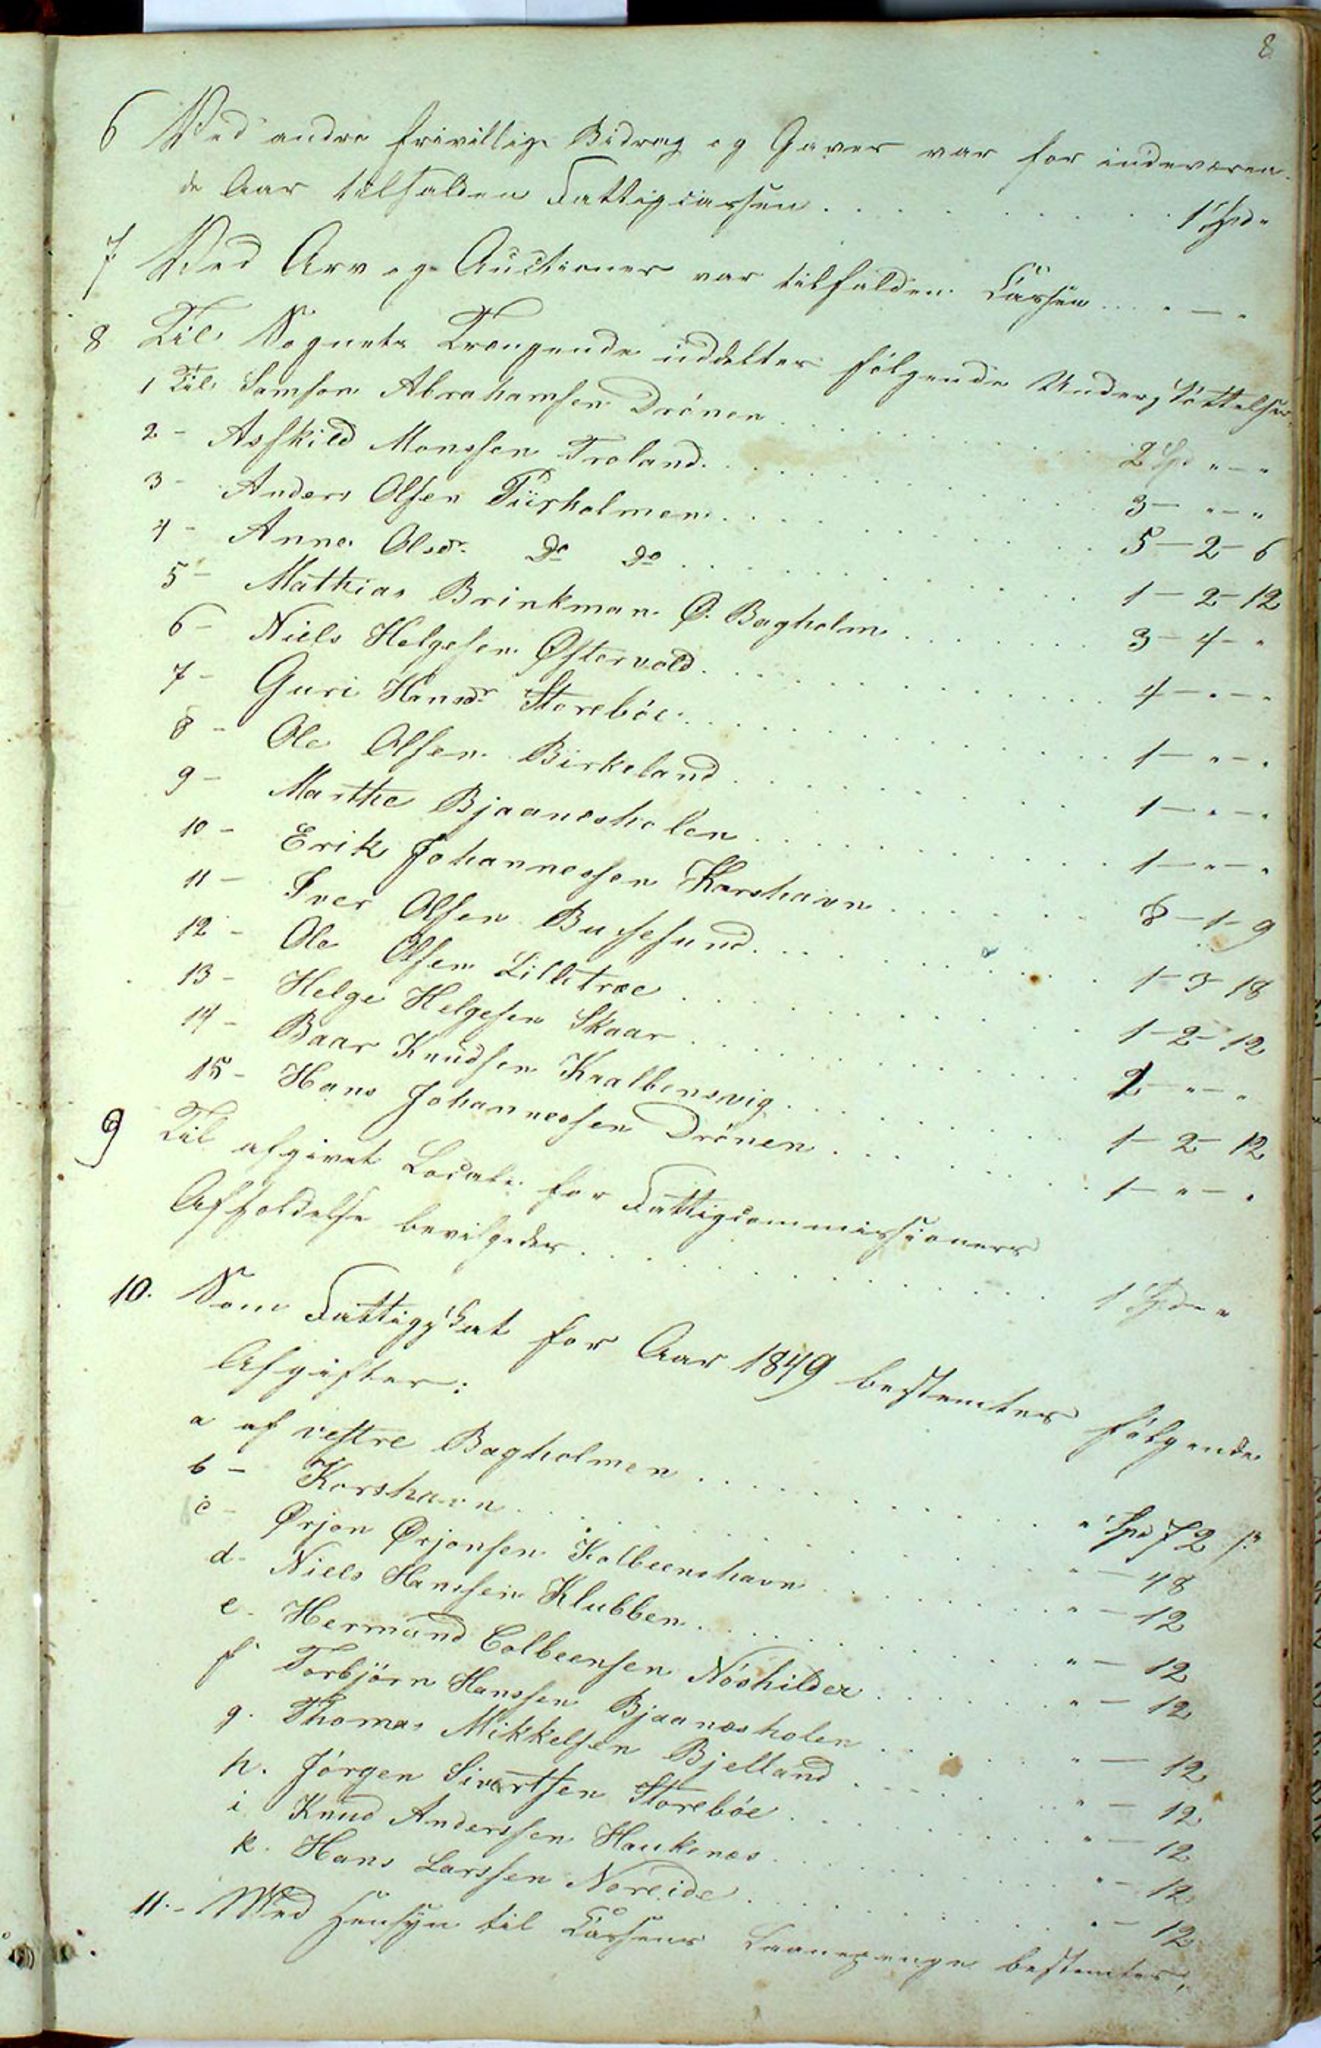 8
6 Ved andre frivillige Bidrag og Gaver var for indeværen-
de Aar tilfalden Fattigcassen . . . . . . . . . . 1 Spd "
7 Ved Arv og Auctioner var tilfalden Cassen . . . " — "
8 Til Sognets Trængende uddeltes følgende Understøttelser
1 Til Samson Abrahamsen Drönen . . . . . . . 2 Spd " — "
2 - Asskild Monssen Troland . . . . . . . 3 — " — "
3 - Anders Olsen Tiirholmen . . . . . . . 5 — 2 — 6
4 - Anna Olsdr. Do Do . . . . . . . 1 — 2 — 12
5 - Mathias Brinkman Ø. Bagholm . . . . . . . 3 — 4 — "
6 - Niels Helgesen Østervold . . . . . . . 4 — " — "
7 - Guri Hansdr Storebøe . . . . . . . 1 — " — "
8 - Ole Olsen Birkeland . . . . . . . 1 — " — "
9 - Marthe Bjaanesholen . . . . . . . 1 — " — "
10 - Erik Johannessen Korshavn . . . . . . . 8 — 1 — 9
11 - Iver Olsen Buchesund . . . . . . . 1 — 3 — 18
12 - Ole Olsen Lilletræe . . . . . . . 1 — 2 — 12
13 - Helge Helgesen Skaar . . . . . . . 2 — " — "
14 - Baar Knudsen Kaalbensvig . . . . . . . 1 — 2 — 12
15 - Hans Johannessen Drönen . . . . . . . 1 — " — "
9 Til afgivet Locale for Fattigcommissioners
Afholdelse bevilgedes . . . . . . . 1 Spd "
10. Som Fattigskat for Aar 1849 bestemtes følgende
Afgifter:
a af vestre Bagholmen . . . . . . . " Spd 72 s.
b - Korshavn . . . . . . . " — 48
c - Ørjan Ørjansen Kolbeenshavn . . . . . . . " — 12
d - Niels Hanssen Klubben . . . . . . . " — 12
e - Hermund Colbeensen Nöshilder . . . . . . . " — 12
f Torbjörn Hanssen Bjaanæsholen . . . . . . . " — 12
g. Thomas Mikkelsen Bjelland . . . . . . . " — 12
h. Jörgen Sivertsen Storebøe . . . . . . . " — 12
i Knud Anderssen Haukenæs . . . . . . . " — 12
k. Hans Larssen Noreide . . . . . . . " — 12
11. - Med Hensyn til Cassens Laanepenge bestemtes,